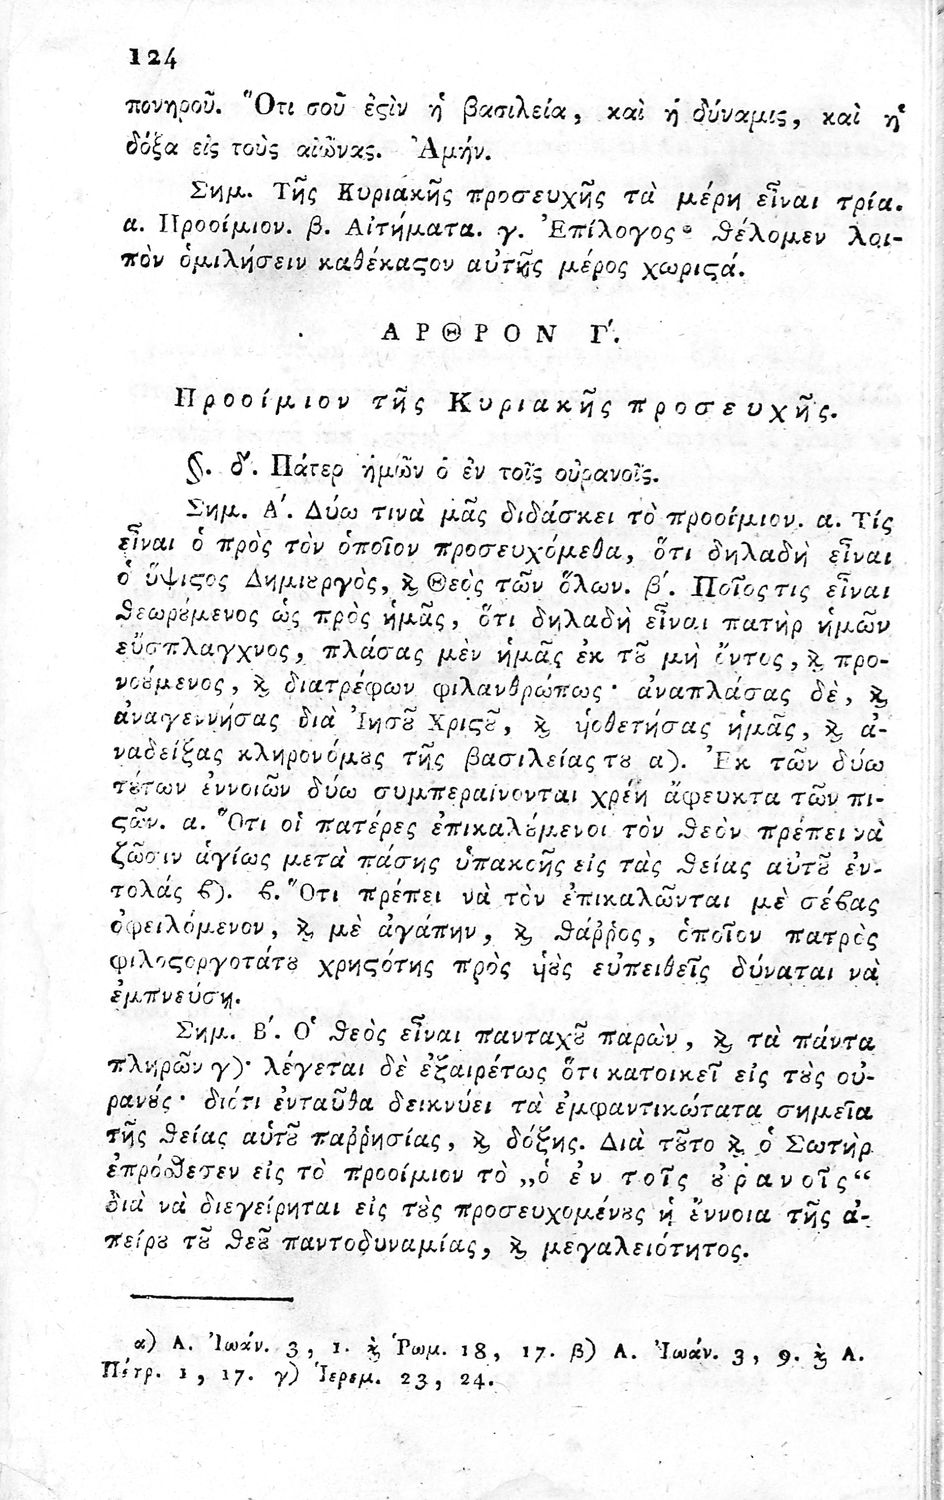 124
πονηροῦ. Ὅτι σοῦ ἐϛὶν ἡ βασιλεία, καὶ ἡ δύναμις, καὶ ἡ
δόξα εἰς τοὺς αἰῶνας. Ἀμήν.
Σημ. Τῆς Κυριακῆς προσευχῆς τὰ μέρη εἶναι τρία.
α. Προοίμιον. β. Αἰτήματα. γ. Ἐπίλογος· θέλομεν λοι-
πὸν ὁμιλήσειν καθέκαϛον αὐτῆς μέρος χωριϛά.
ΑΡΘΡΟΝ Γ΄.
Προοίμιον τῆς Κυριακῆς προσευχῆς.
§. δ΄. Πάτερ ἡμῶν ὁ ἐν τοῖς οὐρανοῖς.
Σημ. Α΄. Δύω τινὰ μᾶς διδάσκει τὸ προοίμιον. α. Τίς
εἶναι ὁ πρὸς τὸν ὁποῖον προσευχόμεθα, ὅτι δηλαδὴ εἶναι
ὁ ὕψιϛος Δημιȣργὸς, ϗ Θεὸς τῶν ὅλων. β΄. Ποῖος τις εἶναι
θεωρȣ́μενος ὡς πρὸς ἡμᾶς, ὅτι δηλαδὴ εἶναι πατὴρ ἡμῶν
εὔσπλαγχνος, πλάσας μὲν ἡμᾶς ἐκ τȣ͂ μὴ ὄντος, ϗ προ-
νούμενος, ϗ διατρέφων φιλανθρώπως· ἀναπλάσας δὲ, ϗ
ἀναγεννήσας διὰ Ἰησȣ͂ Χριϛȣ͂, ϗ υἱοθετήσας ἡμᾶς, ϗ ἀ-
ναδείξας κληρονόμȣς τῆς βασιλείας τȣ α). Ἐκ τῶν δύω
τȣ́των ἐννοιῶν δύω συμπεραίνονται χρέη ἄφευκτα τῶν πι-
ϛῶν. α. Ὅτι οἱ πατέρες ἐπικαλȣ́μενοι τὸν θεὸν πρέπει νὰ
ζῶσιν ἁγίως μετὰ πάσης ὑπακοῆς εἰς τὰς θείας αὑτȣ͂ ἐν-
τολάς ϐ). ϐ. Ὅτι πρέπει νὰ τὸν ἐπικαλῶνται μὲ σέϐας
ὀφειλόμενον, ϗ μὲ ἀγάπην, ϗ θάῤῥος, ὁποῖον πατρὸς
φιλοϛοργοτάτȣ χρηϛότης πρὸς υἱȣ̀ς εὐπειθεῖς δύναται νὰ
ἐμπνεύσῃ.
Σημ. Β΄. Ὁ θεὸς εἶναι πανταχȣ͂ παρὼν, ϗ τὰ πάντα
πληρῶν γ)· λέγεται δὲ ἐξαιρέτως ὅτι κατοικεῖ εἰς τȣ̀ς οὐ-
ρανȣ́ς· διότι ἐνταῦθα δεικνύει τὰ ἐμφαντικώτατα σημεῖα
τῆς θείας αὑτȣ͂ παῤῥησίας, ϗ δόξης. Διὰ τȣ͂το ϗ ὁ Σωτὴρ
ἐπρόσθεσεν εἰς τὸ προοίμιον τὸ „ὁ ἐν τοῖς ȣ̓ρανοῖς“
διὰ νὰ διεγείρηται εἰς τȣ̀ς προσευχομένȣς ἡ ἔννοια τῆς ἀ-
πείρȣ τȣ͂ θεȣ͂ παντοδυναμίας, ϗ μεγαλειότητος.
α) Α. Ἰωάν. 3, 1. ϗ Ῥωμ. 18, 17. β) Α. Ἰωάν. 3, 9. ϗ Α.
Πέτρ. 1, 17. γ) Ἱερεμ. 23, 24.